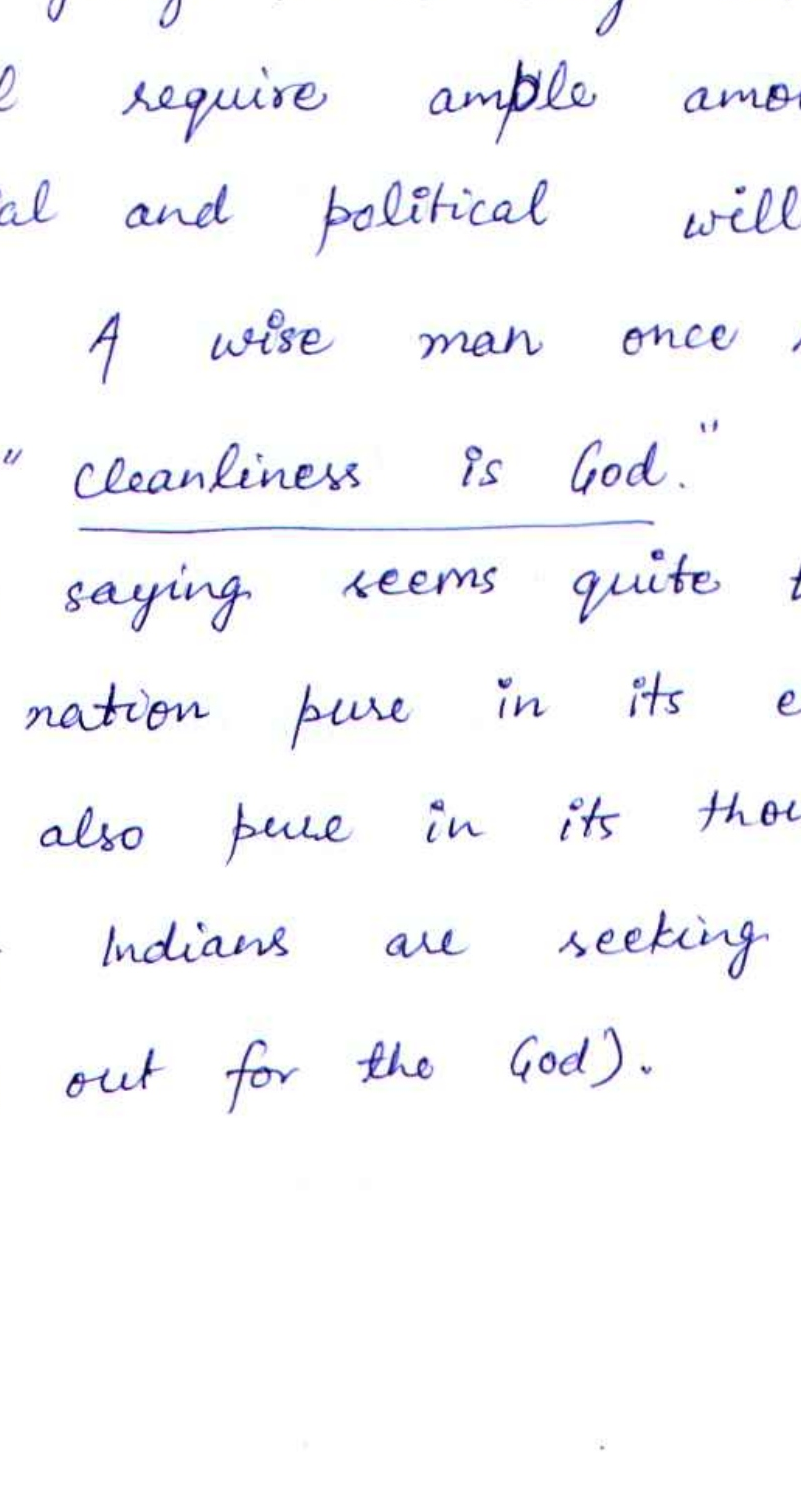 require ample
and political will
A wise man once
" cleanliness is God."
saying seems quite
nation pure in its
also pure in its
Indians are seeking
out for the God).